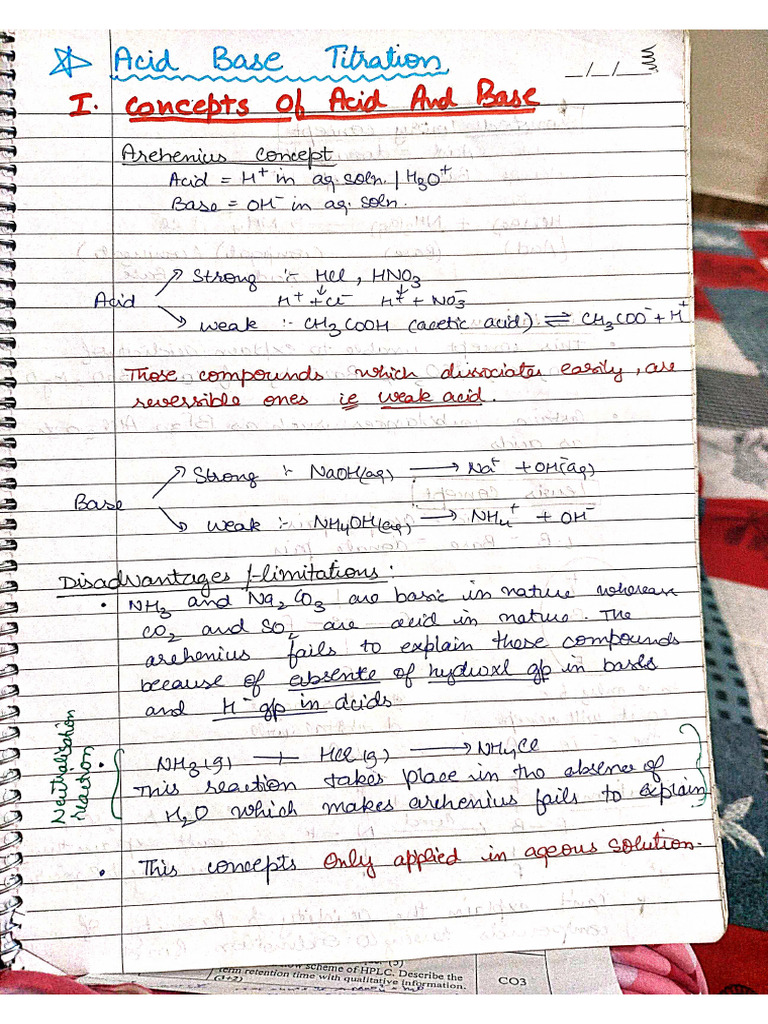 Acid Base Titration
_/_/_
I. Concepts Of Acid And Base
Arehenius concept
Acid = H⁺ in aq. soln. / H₃O⁺
Base = OH⁻ in aq. soln.
Strong :- HCl , HNO₃
H⁺ + Cl⁻ H⁺ + NO₃⁻
Acid
weak :- CH₃COOH (acetic acid) ⇌ CH₃COO⁻ + H⁺
Those compounds which dissociates easily, are
reversible ones ie weak acid.
Strong :- NaOH(aq) ⟶ Na⁺ + OH⁻(aq)
Base
weak :- NH₄OH(aq) ⟶ NH₄⁺ + OH⁻
Disadvantages /-limitations :
• NH₃ and Na₂CO₃ are basic in nature whereas
CO₂ and SO₂ are acid in nature. The
arehenius fails to explain those compounds
because of absente of hydroxl gp in bases
and H⁻ gp in acids.
Neutralisation
reaction
• NH₃(g) + HCl(g) ⟶ NH₄Cl
This reaction takes place in the absence of
H₂O which makes arehenius fails to explain
• This concepts only applied in aqeous solution.
scheme of HPLC. Describe the
term retention time with qualitative information.
CO3